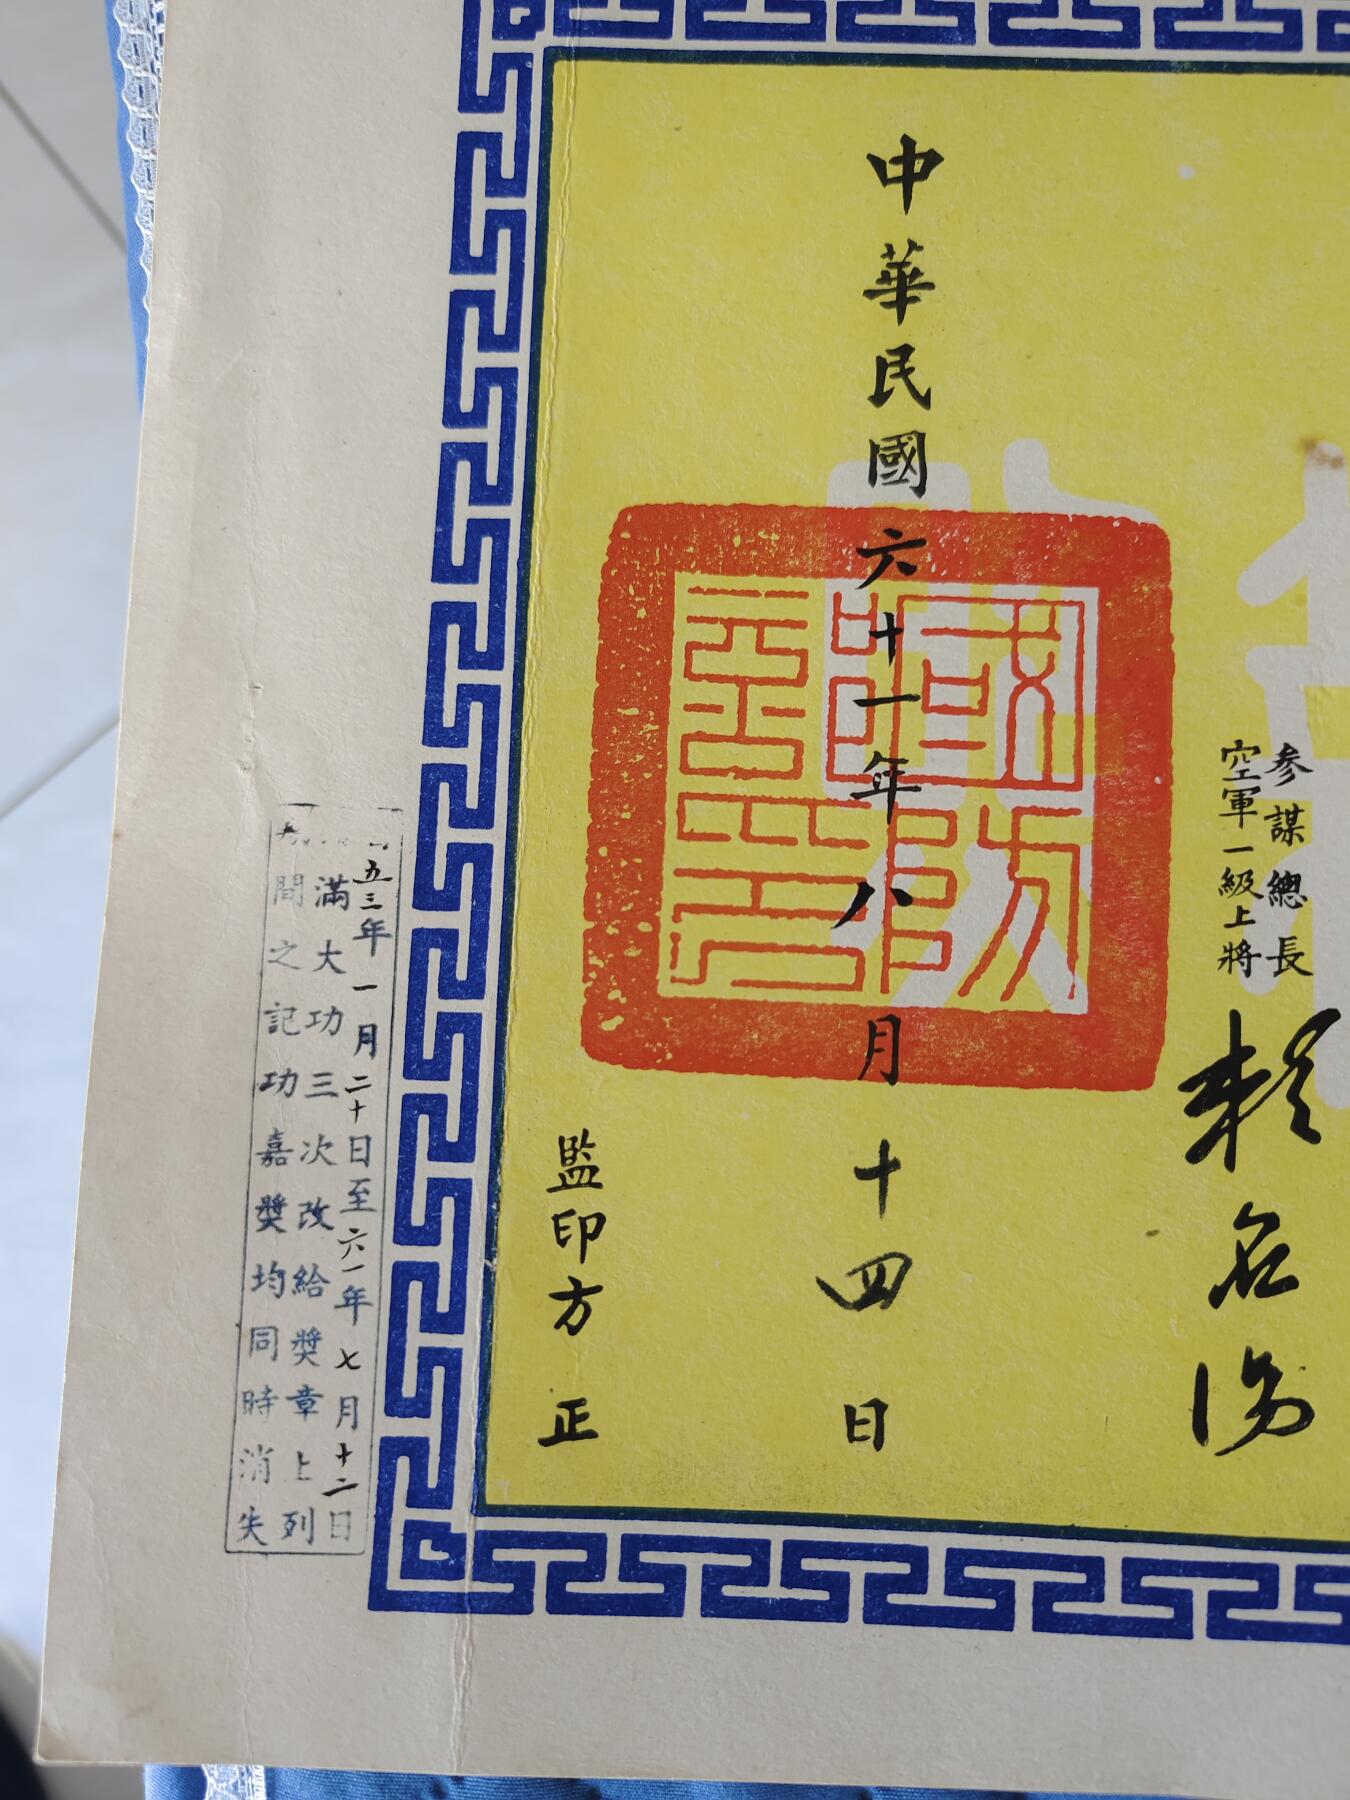 参謀總長
空軍一級上將
賴名湯
中華民國六十一年八月十四日
國防部印
監印方正
五三年一月二十日至六一年七月十二日
滿大功三次改給獎章上列
間之記功嘉獎均同時消失